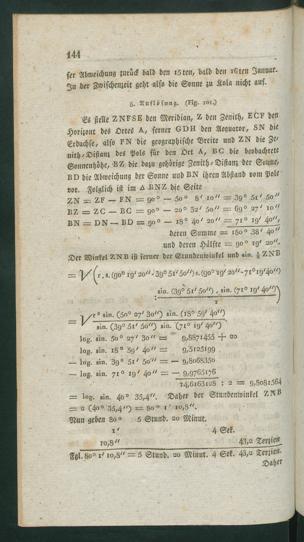 144
ser Abweichung zurück bald den 15ten, bald den 16ten Januar.
In der Zwischenzeit geht also die Sonne zu Kola nicht auf.
5. Auflösung. (Fig. 101.)
Es stelle ZNFSE den Meridian, Z den Zenith, ECF den
Horizont des Ortes A, ferner GDH den Aequator, SN die
Erdachse, also FN die geographische Breite und ZN die Ze-
nith-Distanz des Pols für den Ort A, BC die beobachtete
Sonnenhöhe, BZ die dazu gehörige Zenith-Distanz der Sonne,
BD die Abweichung der Sonne und BN ihren Abstand vom Pole
vor. Folglich ist im Δ BNZ die Seite
ZN = ZF — FN = 90° — 50° 8′ 10″ = 39° 51′ 50″
BZ = ZC — BC = 90° — 20° 32′ 50″ = 69° 27′ 10″
BN = DN — BD = 90° — 18° 40′ 20″ = 71° 19′ 40″,
deren Summe = 180° 38′ 40″
und deren Hälfte = 90° 19′ 20″.
Der Winkel ZNB ist ferner der Stundenwinkel und sin. ½ ZNB
= √(r, s.(90° 19′ 20″-39° 51′ 50″) s.(90° 19′ 20″-71° 19′ 40″)
: sin. (39° 51′ 50″) . sin. (71° 19′ 40″))
= √ r² sin. (50° 27′ 30″) sin. (18° 59′ 40″)
sin. (39° 51′ 50″) sin. (71° 19′ 40″)
log. sin. 50° 27′ 30″ = 9,8871455 + 20
log. sin. 18° 59′ 40″ = 9,5125199
— log. sin. 39° 51′ 50″ = — 9,8068350
— log. sin. 71° 19′ 40″ = — 9,9765176
14,6163128 : 2 = 9,5081564
= log. sin. 40° 35,4″. Daher der Stundenwinkel ZNB
= 2 (40° 35,4″) = 80° 1′ 10,8″.
Nun geben 80° 5 Stund. 20 Minut.
1′ 4 Sek.
10,8″ 43,2 Terzien
Fgl. 80° 1′ 10,8″ = 5 Stund. 20 Minut. 4 Sek. 43,2 Terzien.
Daher